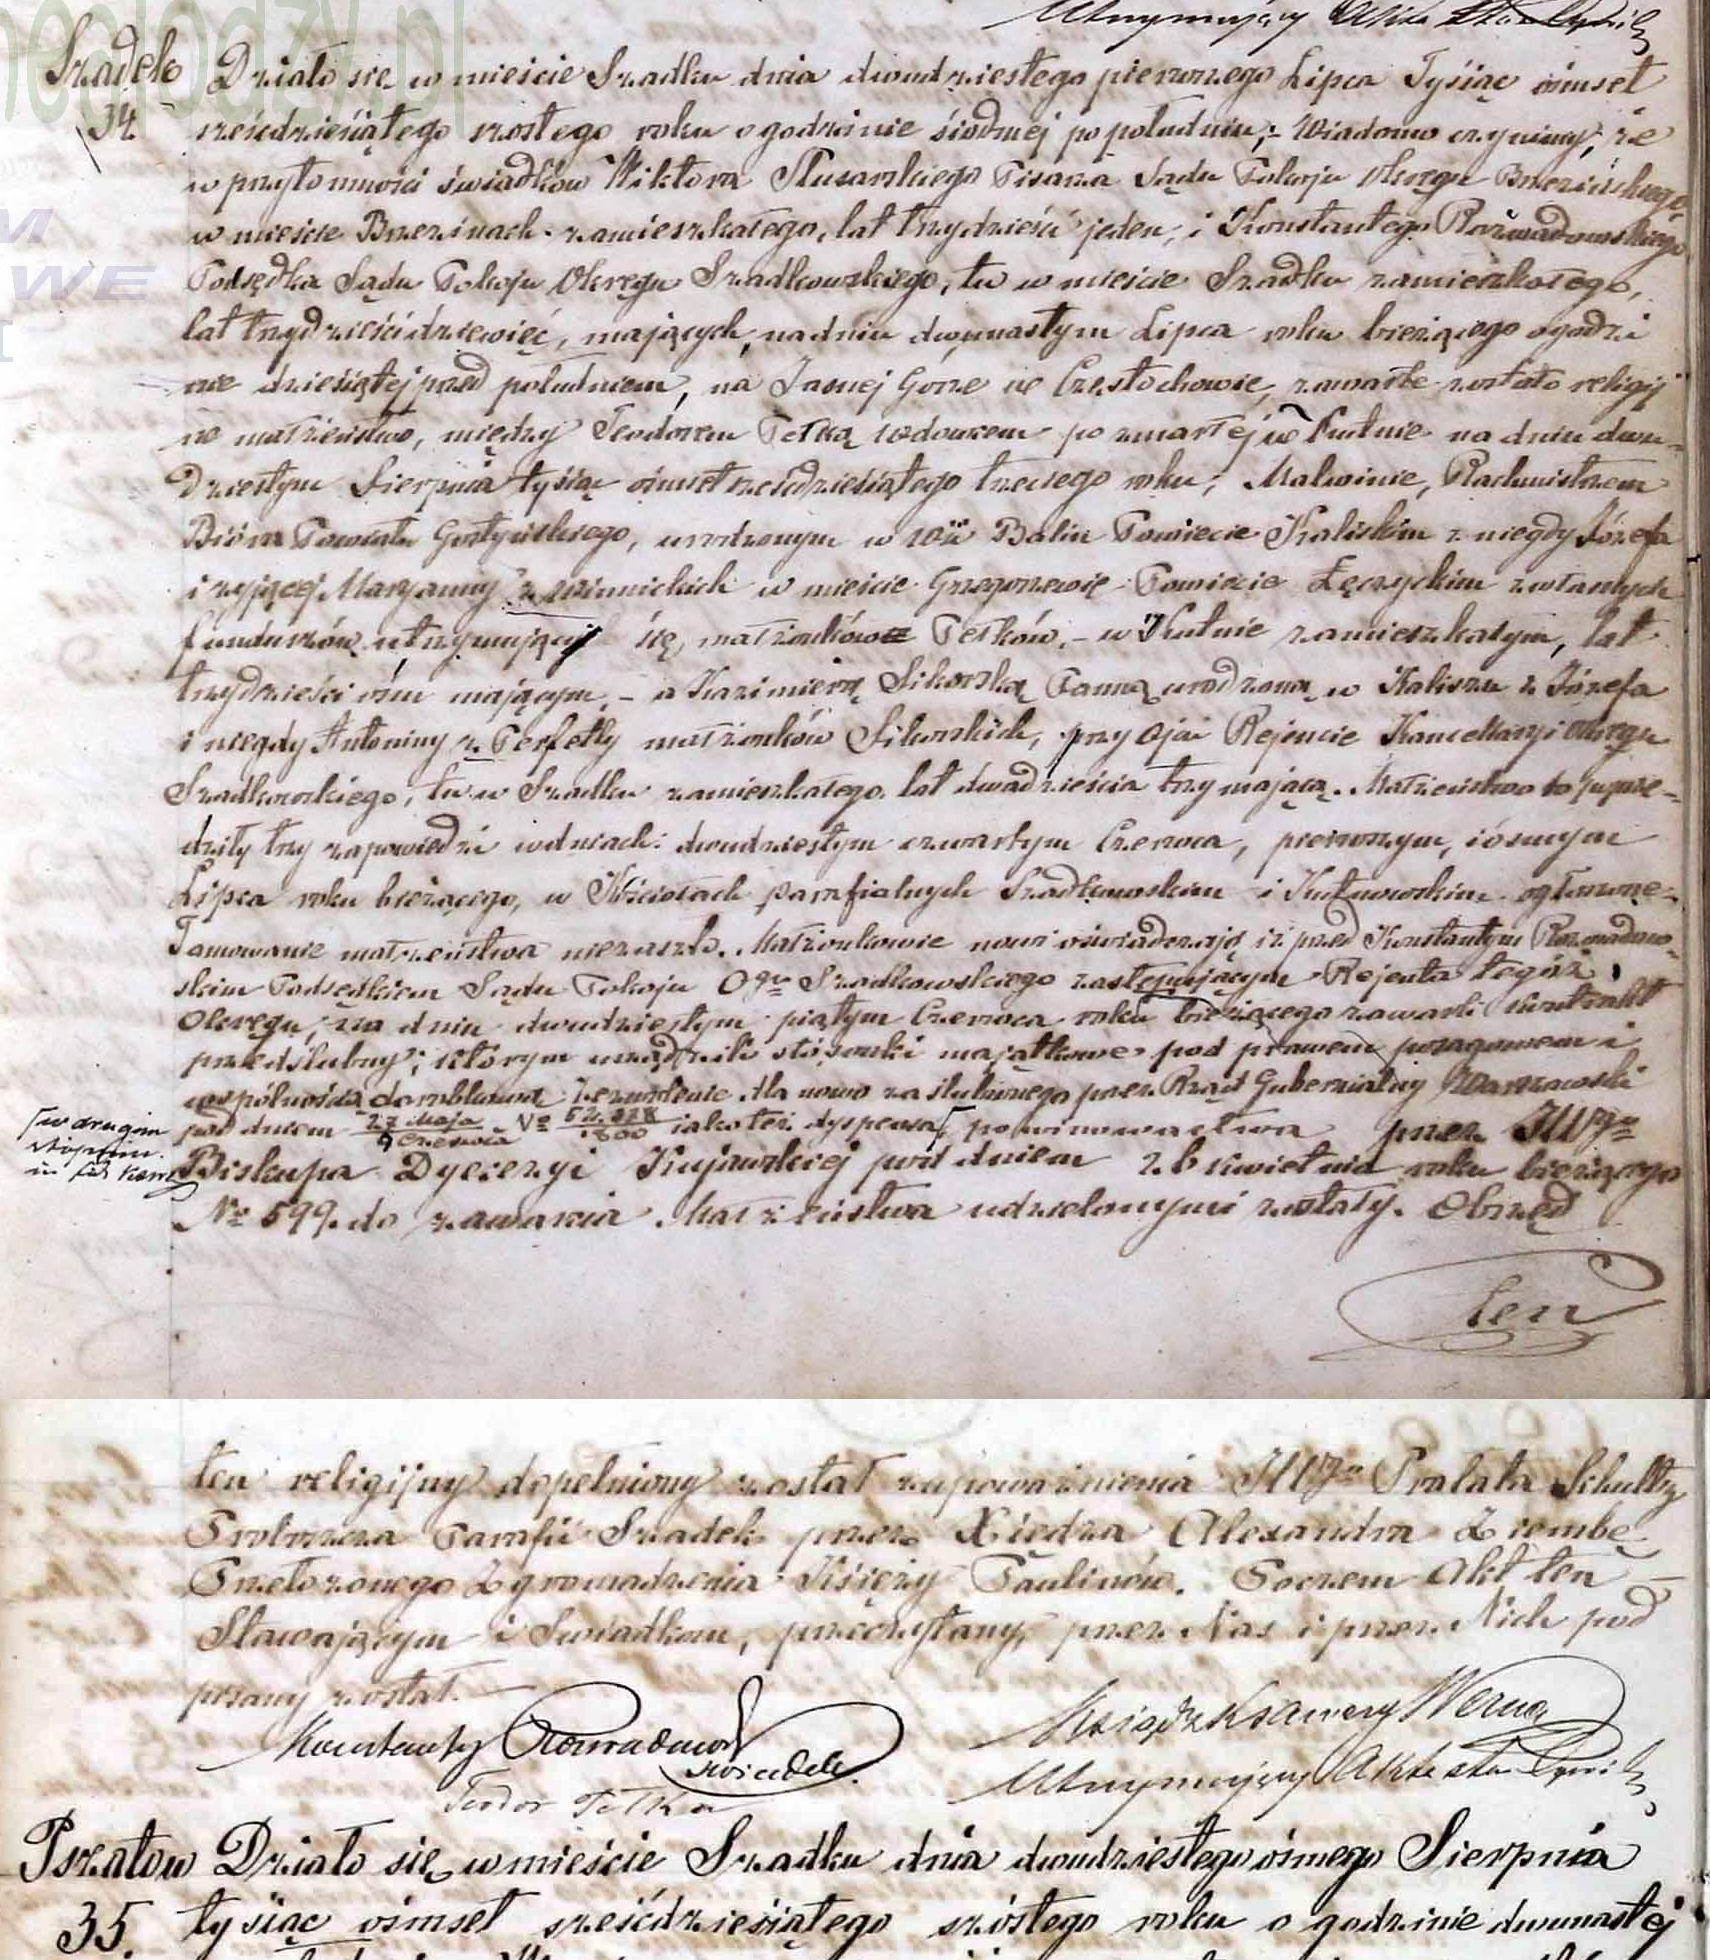 Utrzymujący Akta
Szadek Działo się w mieście Szadku dnia dwudziestego pierwszego Lipca Tysiąc ośmset
34 sześćdziesiątego szóstego roku o godzinie siódmej po południu; Wiadomo czynimy, że
w przytomności świadków Wiktora Slusarskiego Pisarza Sądu Pokoju Okręgu Brzezińskiego
w mieście Brzezinach zamieszkałego, lat trzydzieści jeden, i Konstantego Rozwadowskiego
Podsędka Sądu Pokoju Okręgu Szadkowskiego, tu w mieście Szadku zamieszkałego,
lat trzydzieści dziewięć, mających, na dniu dwunastym Lipca roku bieżącego o godzi
nie dziesiątej przed południem, na Jasnej Górze w Częstochowie, zawarte zostało religij
ne małżeństwo, między Teodorem Pełką wdowcem po zmarłej w Kutnie na dniu dwu-
dziestym Sierpnia tysiąc ośmset sześćdziesiątego trzeciego roku; Malwinie, Rachmistrzem
Biura Powiatu Gostyńskiego, urodzonym w wsi Balin Powiecie Kaliskim z niegdy Józefa
i żyjącej Maryanny z Winnickich w mieście Grzegorzewie Powiecie Łęczyckim z własnych
funduszów utrzymującej się, małżonków Pełków, - w Kutnie zamieszkałym, lat
trzydzieści ośm mającym, - a Kazimierą Sikorską Panną urodzoną w Kaliszu z Józefa
i niegdy Antoniny z Perfetty małżonków Sikorskich, przy Ojcu Rejencie Kancellaryi Okręgu
Szadkowskiego, tu w Szadku zamieszkałego lat dwadzieścia trzy mającą. Małżeństwo to poprze-
dziły trzy zapowiedzi w dniach: dwudziestym czwartym Czerwca, pierwszym, i ósmym
Lipca roku bieżącego, w Kościołach parafialnych Szadkowskim i Kutnowskim ogłoszone.
Tamowanie małżeństwa nie zaszło. Małżonkowie nowi oświadczają iż przed Konstantym Rozwadow-
skim Podsędkiem Sądu Pokoju Ogu Szadkowskiego zastępującym Rejenta tegoż
Okręgu, na dniu dwudziestym piątym Czerwca roku bieżącego zawarli kontrakt
przedślubny; którym urządzili stósunki majątkowe pod prawem posagowem i
wspólnością dorobkową. Zezwolenie dla nowo zaślubionego przez Rząd Gubernialny Warszawski
pod dniem 27 Maja / 9 Czerwca No jako też dyspensa powinowactwa przez JWgo
w drugim
stopniu
Biskupa Dyecezyi Kujawskiej pod dniem 26 kwietnia roku bieżącego
No 599. do zawarcia Małżeństwa udzielonymi zostały. Obrzęd
ten
ten religijny dopełniony został z upoważnienia JWgo Prałata Schultz
Proboszcza Parafii Szadek przez Xiędza Alexandra Ziembę
Przełożonego Zgromadzenia Księży Paulinów. Poczem Akt ten
Stawającym i Świadkom, przeczytany, przez Nas i przez Nich pod
pisany został.
Konstanty Rozwadowski świadek.
Ksiądz Ksawery
Teodor Pełka
Utrzymujący Akta
Pszatow Działo się w mieście Szadku dnia dwudziestego ósmego Sierpnia
35. tysiąc ośmset sześćdziesiątego szóstego roku o godzinie dwunastej